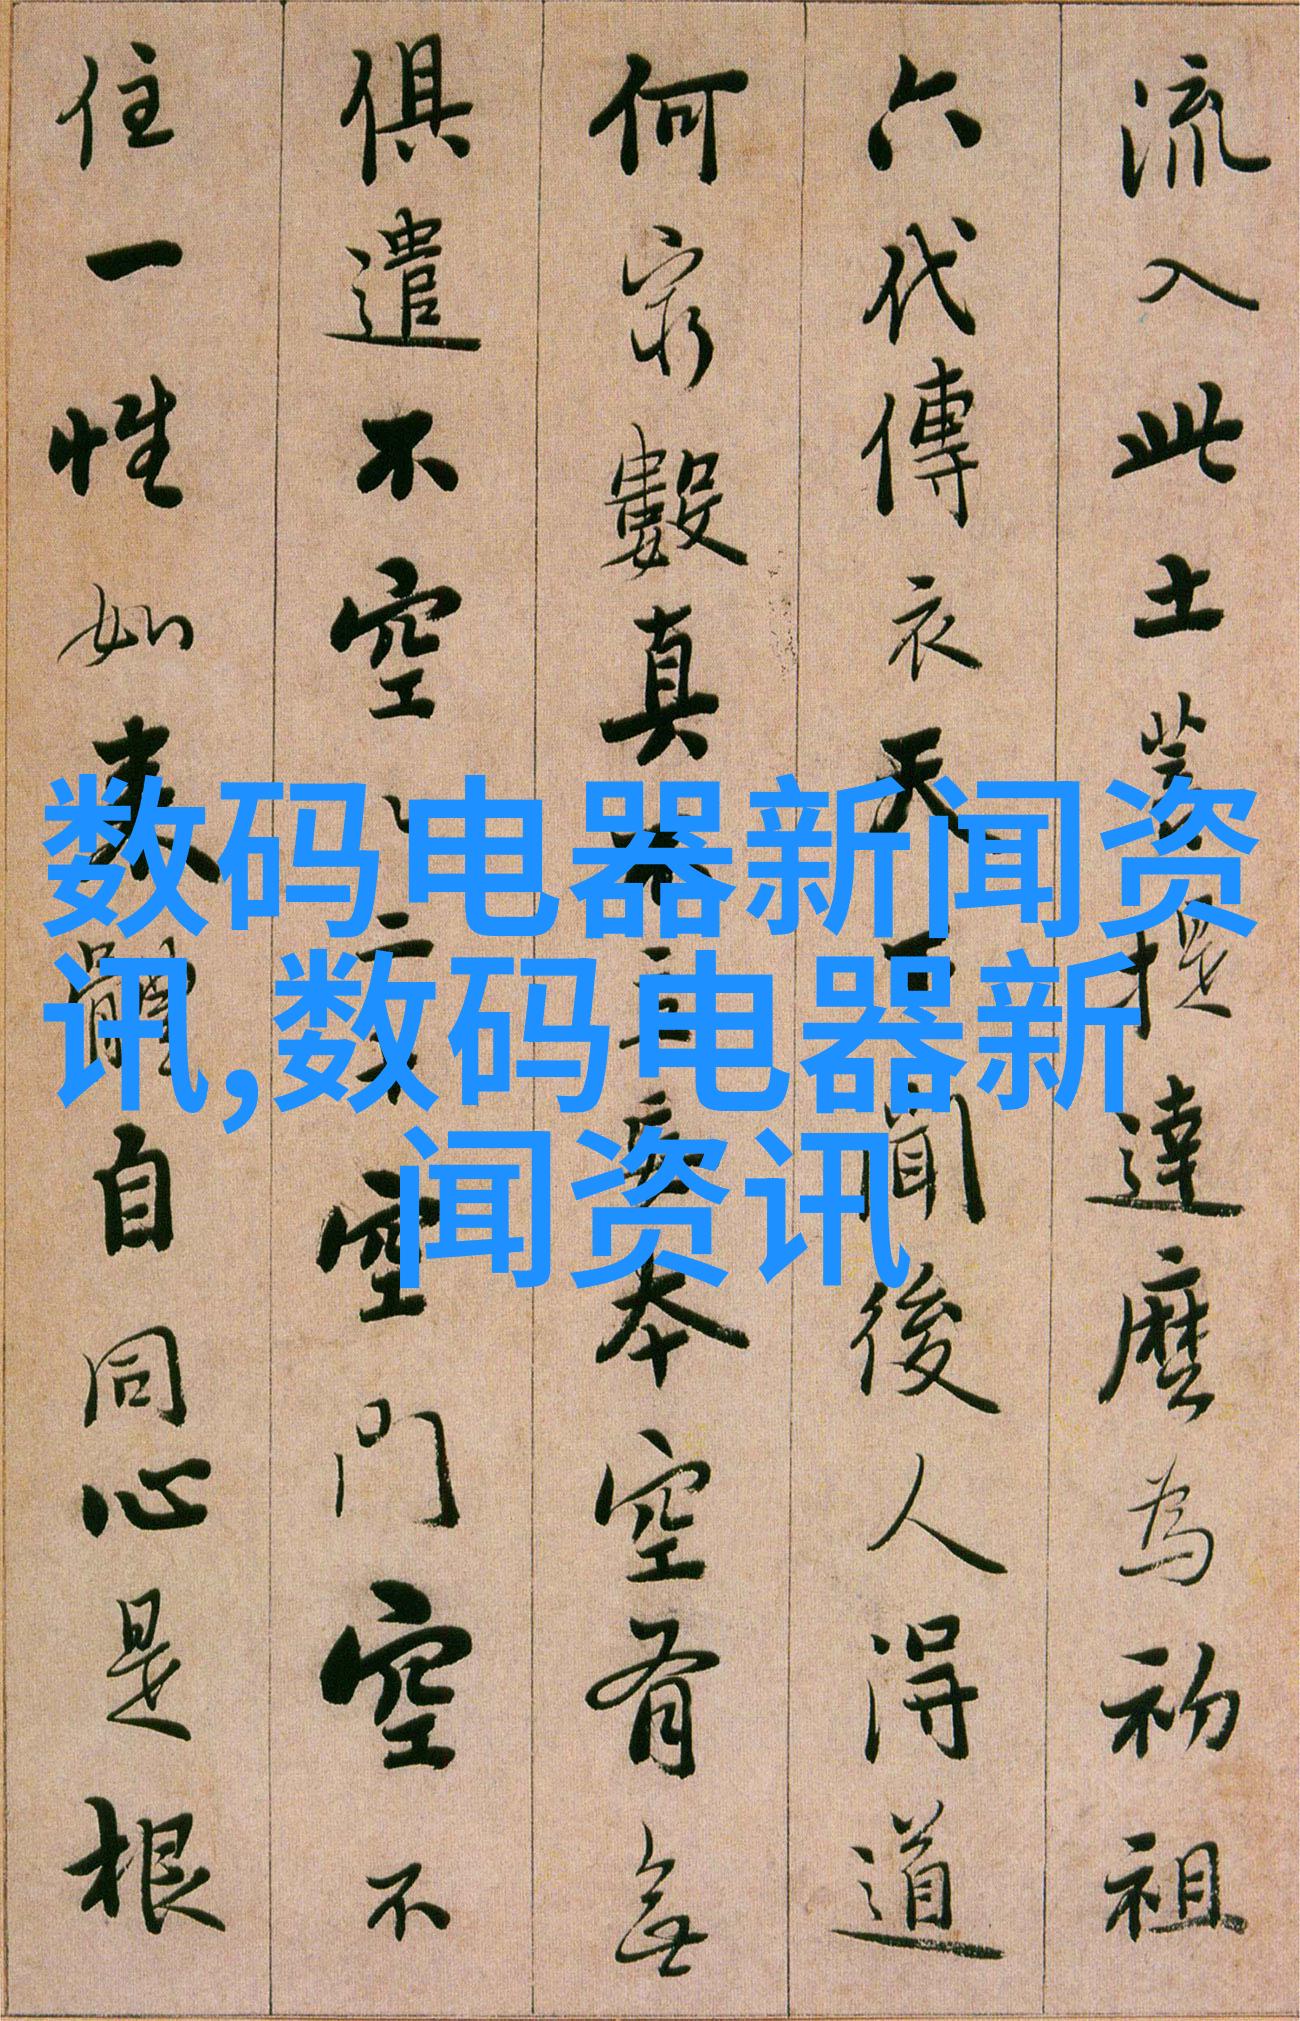 流入此土菩提達磨為初祖
六代傳衣天下聞後人得道
何窮數真不立妄本空有無
俱遣不空〻二十空門空不
住一性如来體自同心是根
数码电器新闻资
讯,数码电器新
闻资讯